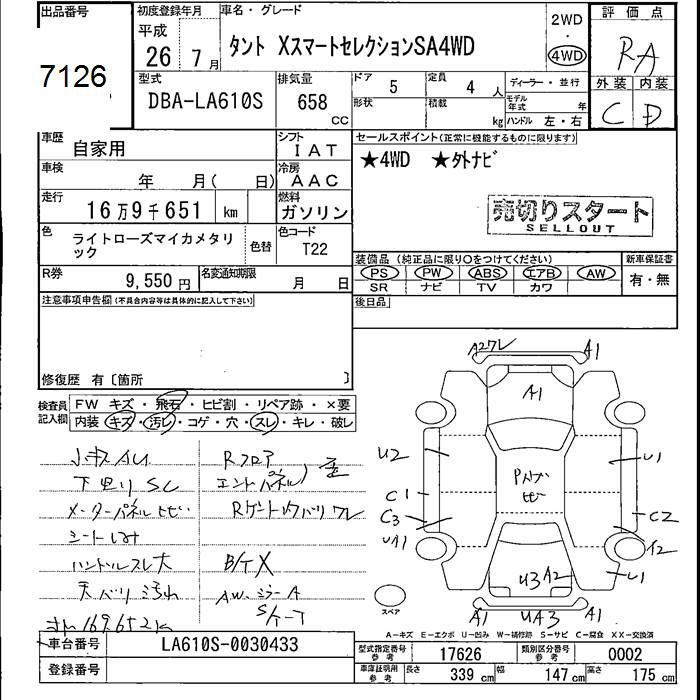 出品番号
7126
初度登録年月
平成
26年 7月
車名・グレード
タント XスマートセレクションSA4WD
2WD
・
4WD
評価点
RA
外装 内装
C D
型式
DBA-LA610S
排気量
658
CC
ドア
5
定員
4 人
ディーラー・並行
形状
積載
kg
モデル年式
年
ハンドル 左・右
車歴
自家用
シフト
IAT
車検
年 月( 日)
冷房
AAC
走行
16万9千651 km
燃料
ガソリン
色
ライトローズマイカメタリック
色替
色コード
T22
R券
9,550円
名変通知期限
月 日
セールスポイント(正常に機能するものに限ります)
★4WD ★外ナビ
売切りスタート
SELLOUT
装備品 (純正品に限り○をつけてください)
新車保証書
PS PW ABS エアB AW
有・無
SR ナビ TV カワ
後日品
注意事項申告欄(不具合内容等は具体的に記入して下さい)
修復歴 有〔箇所 〕
検査員記入欄
FW キズ・飛石・ヒビ割・リペア跡・×要
内装 キズ・汚レ・コゲ・穴・スレ・キレ・破レ
小キズAU
下回りSC
メーターパネルヒビ
シートしみ
ハンドルスレ大
天バリ汚れ
Rフロア
エンドパネル
B/T X
AWミラーA
A27レ
A1
A1
U2
U1
C1
C3
UA1
C2
U1
U3 A2
A1
UA3
A1
スペア
A-キズ E-エクボ U-凹み W-補修跡 S-サビ C-腐食 XX-交換済
車台番号
LA610S-0030433
登録番号
型式指定番号
参考
17626
類別区分番号
参考
0002
車庫証明用
参考
長さ 339 cm
幅 147 cm
高さ 175 cm